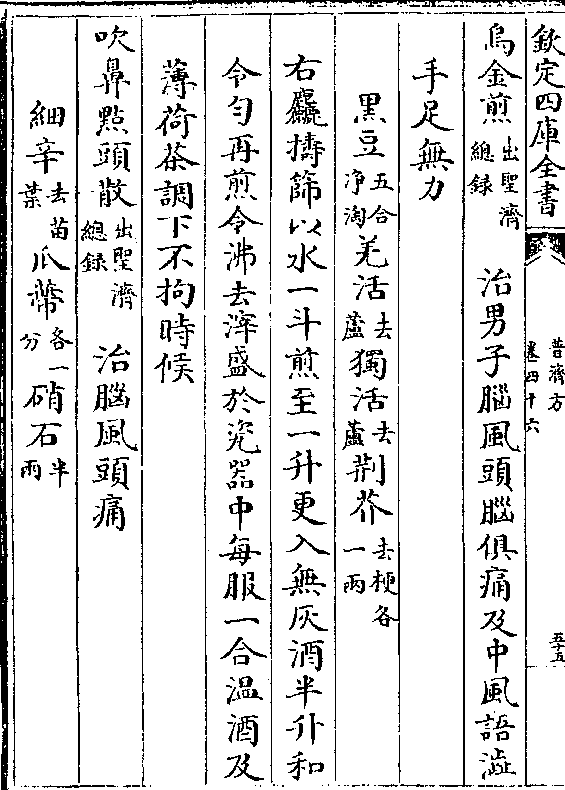 欽定四庫全書
普濟方
卷四十六
五十五
烏金煎出聖濟總録 治男子腦風頭腦俱痛及中風語澁
手足無力
黑豆五合净淘羌活去蘆獨活去蘆荆芥去梗各一兩
右麤擣篩以水一斗煎至一升更入無灰酒半升和
令匀再煎令沸去滓盛於瓷器中每服一合温酒及
薄荷茶調下不拘時候
吹鼻點頭散出聖濟總録 治腦風頭痛
細辛去苗葉瓜蔕各一分硝石半兩